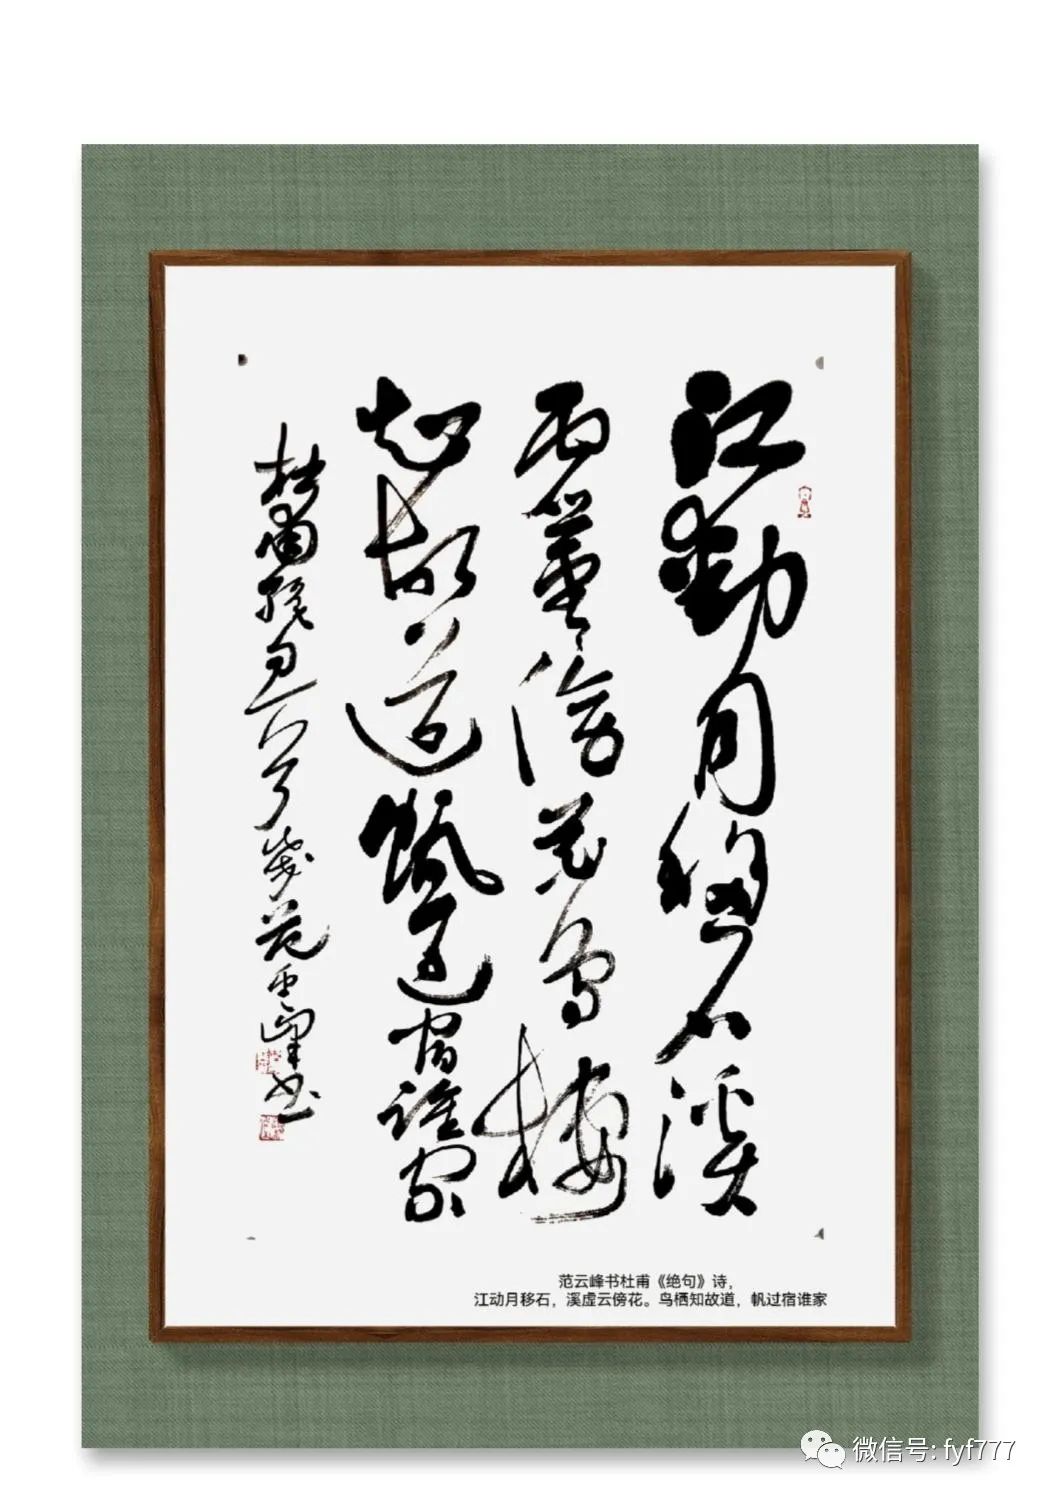 江動月移石溪
虚雲傍花鳥棲
知故道帆過宿誰家
杜甫絶句歲范雲峰书
范云峰书杜甫《绝句》诗，
江动月移石，溪虚云傍花。鸟栖知故道，帆过宿谁家
微信号: fyf777